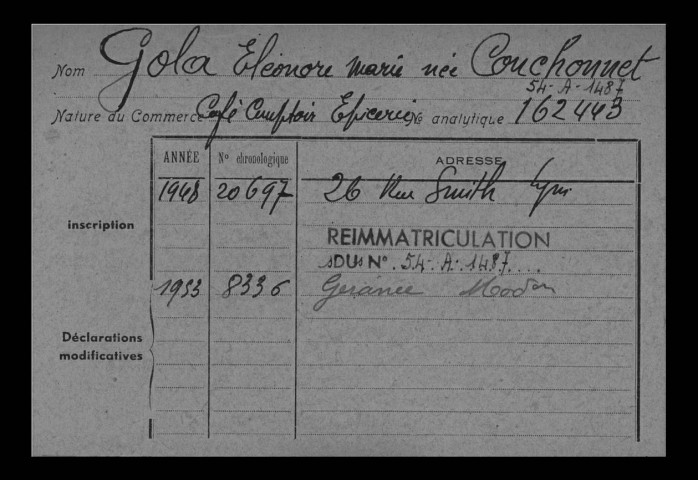 Nom Gola Eléonore Marie née Couchonnet
54-A-1487
Nature du Commerce Café Comptoir Epicerie No analytique 162443
ANNÉE No chronologique ADRESSE
inscription
1948 20697 26 Rue Smith Lyon
REIMMATRICULATION
SOUS No. 54-A-1487
1953 8336 Gérance
Déclarations
modificatives